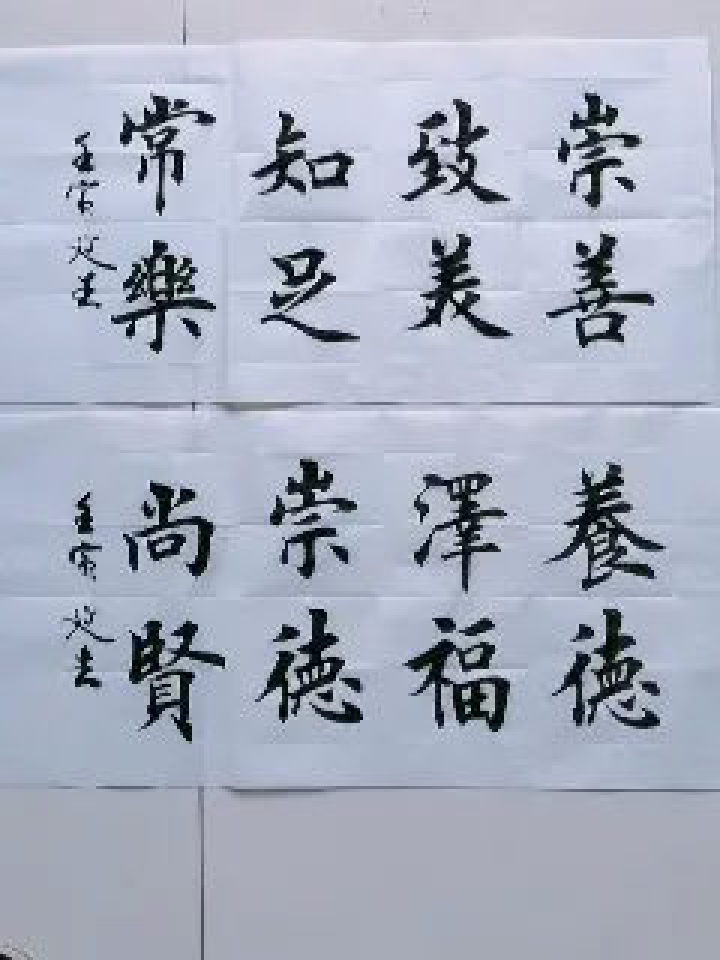 崇善
致美
知足
常樂
壬寅
養德
澤福
崇德
尚賢
壬寅